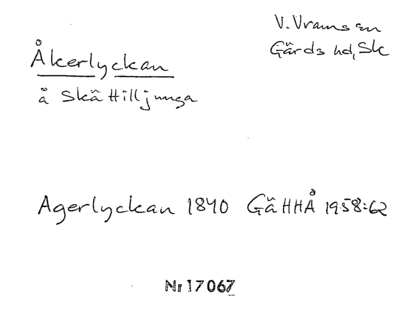 Åkerlyckan
å Skättilljunga
V. Vram sn
Gärds hd, Sk
Agerlyckan 1840 GäHHÅ 1958:62
Nr 17067